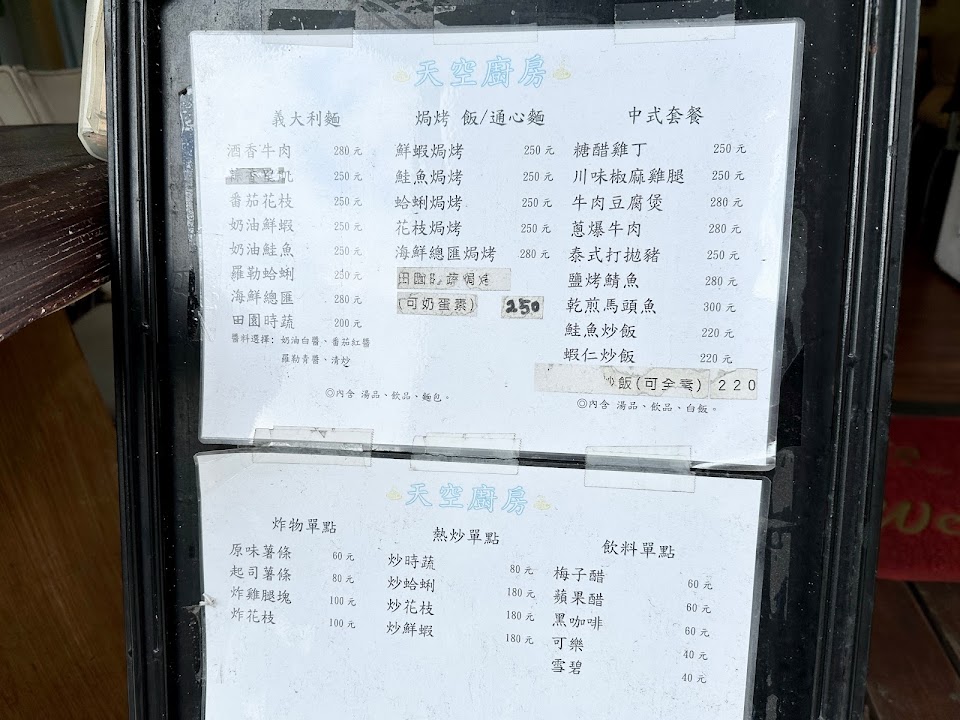 天空廚房
義大利麵
酒香牛肉 280元
250元
番茄花枝 250元
奶油鮮蝦 250元
奶油鮭魚 250元
羅勒蛤蜊 250元
海鮮總匯 280元
田園時蔬 200元
醬料選擇: 奶油白醬、番茄紅醬
羅勒青醬、清炒
◎內含 湯品、飲品、麵包。
焗烤 飯/通心麵
鮮蝦焗烤 250元
鮭魚焗烤 250元
蛤蜊焗烤 250元
花枝焗烤 250元
海鮮總匯焗烤 280元
田園時蔬焗烤
(可奶蛋素) 250
中式套餐
糖醋雞丁 250元
川味椒麻雞腿 250元
牛肉豆腐煲 280元
蔥爆牛肉 280元
泰式打拋豬 250元
鹽烤鯖魚 280元
乾煎馬頭魚 300元
鮭魚炒飯 220元
蝦仁炒飯 220元
炒飯(可全素) 220
◎內含 湯品、飲品、白飯。
天空廚房
炸物單點
原味薯條 60元
起司薯條 80元
炸雞腿塊 100元
炸花枝 100元
熱炒單點
炒時蔬 80元
炒蛤蜊 180元
炒花枝 180元
炒鮮蝦 180元
飲料單點
梅子醋 60元
蘋果醋 60元
黑咖啡 60元
可樂 40元
雪碧 40元